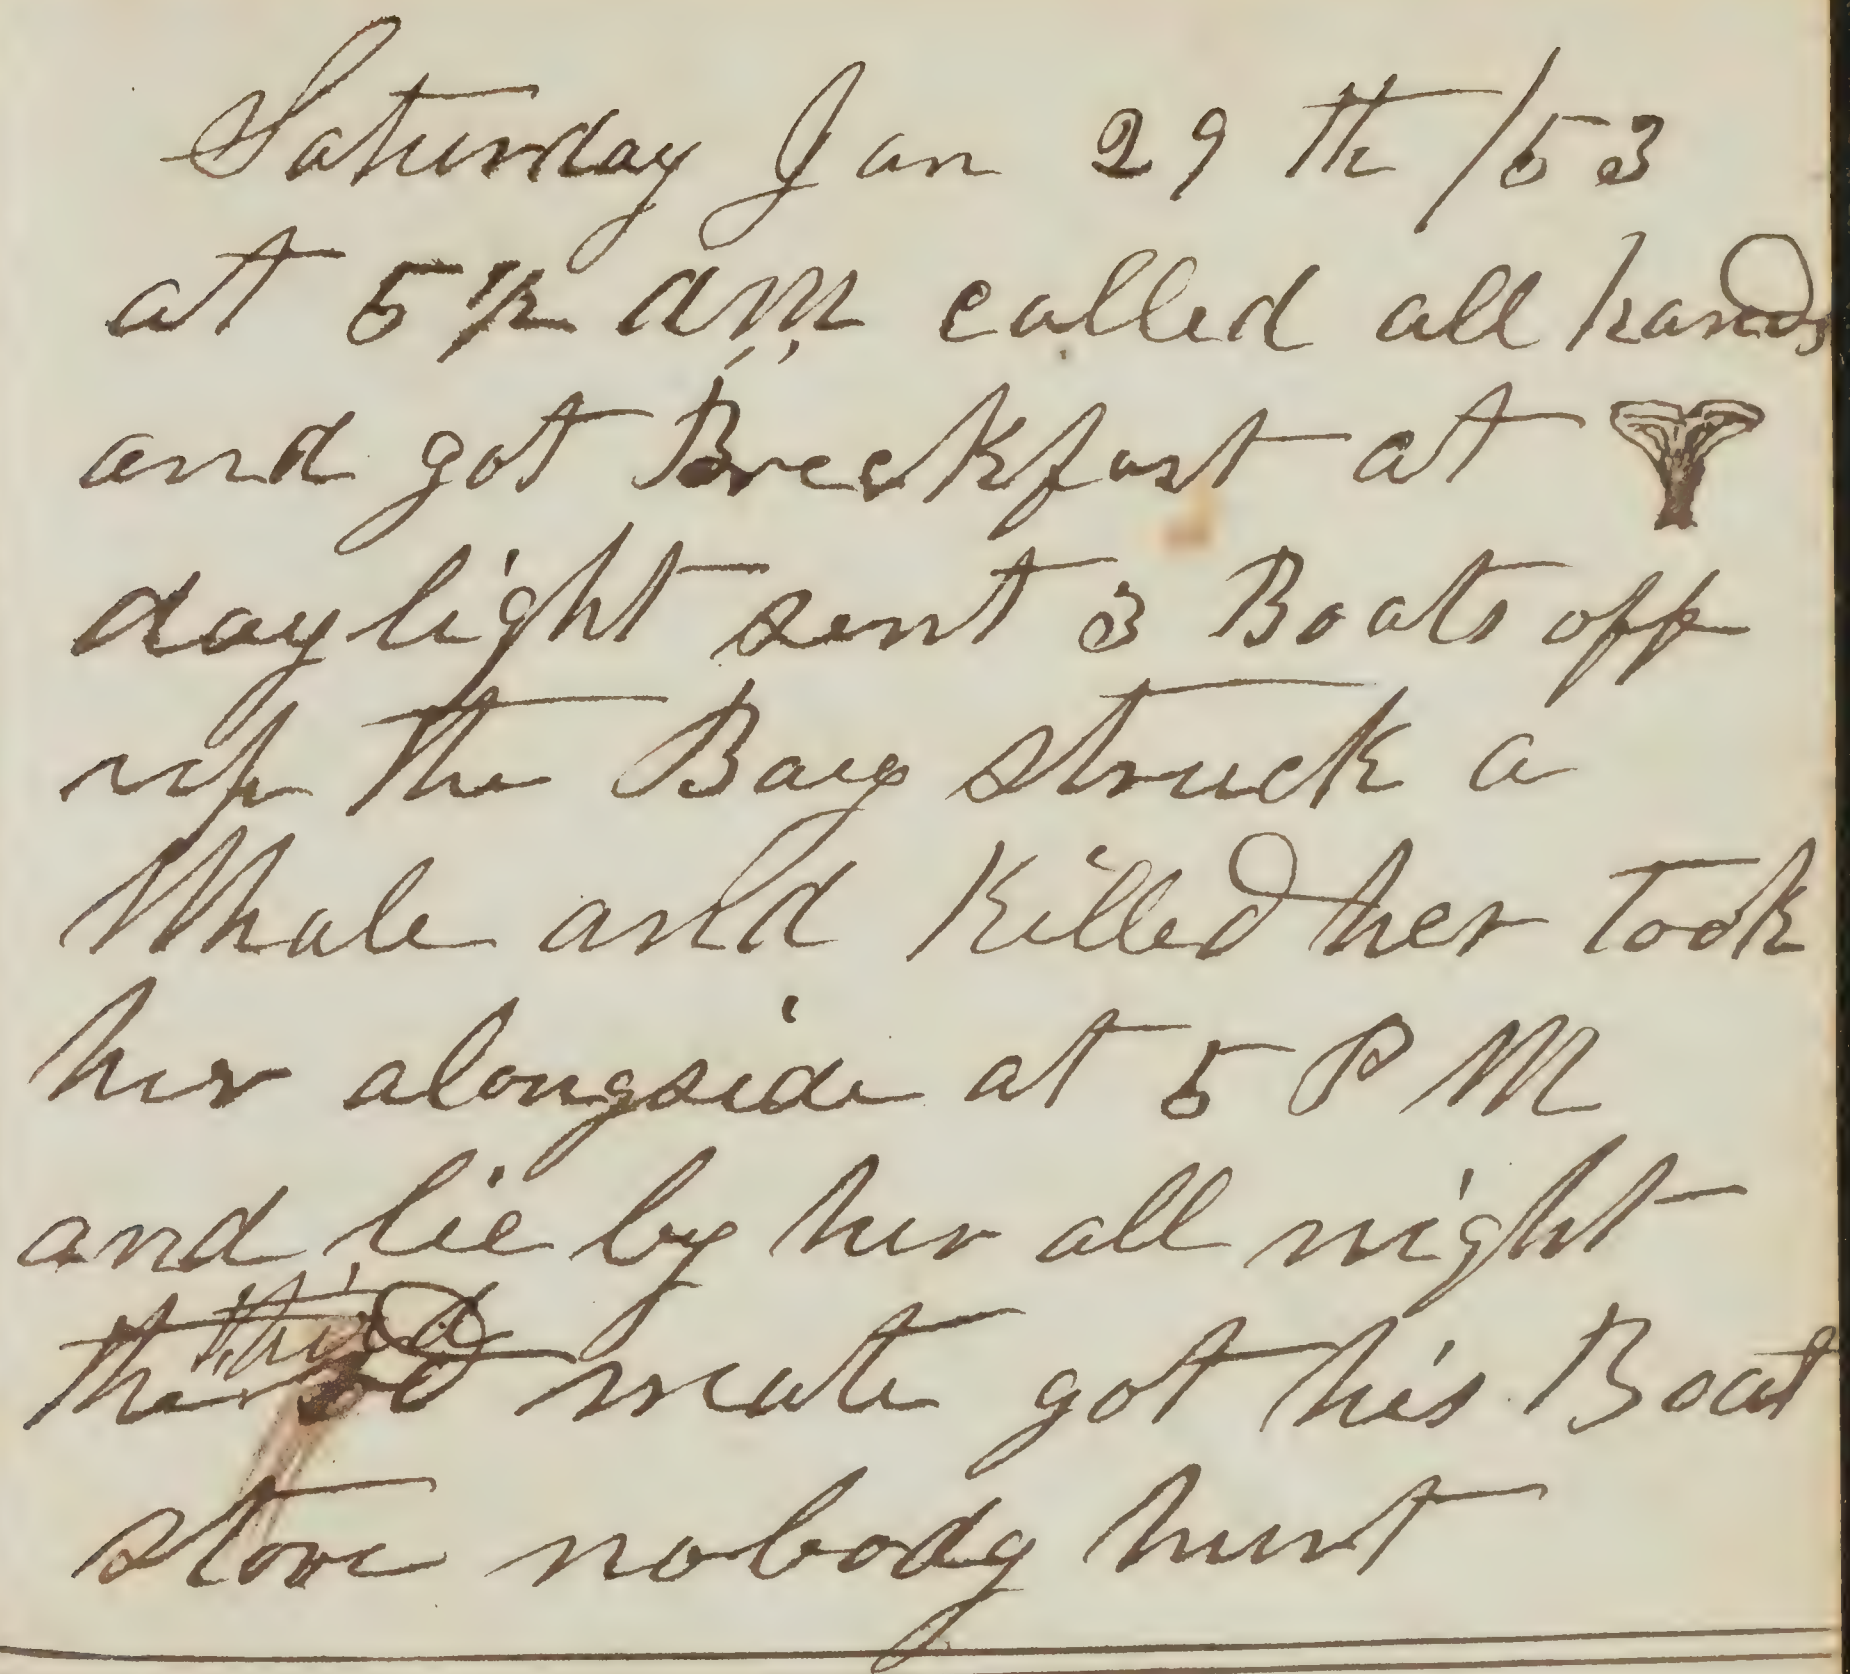 Saturday Jan 29th /53
at 5 1/2 am called all hands
and got Breekfast at
daylight sent 3 Boats off
up the Bay struck a
Whale and Killed her took
her alongside at 5 PM
and lie by her all night
third
the mate got his Boat
stove nobody hurt